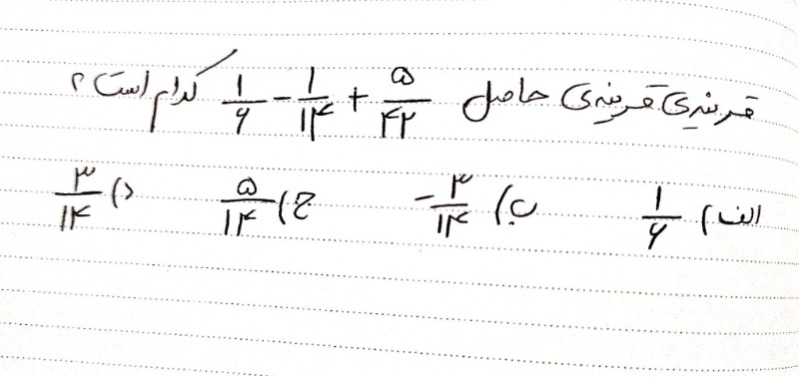 قرینه‌ی قرینه‌ی حاصل ۱/۶ - ۱/۱۴ + ۵/۴۲ کدام است؟
الف) ۱/۶ ب) -۳/۱۴ ج) ۵/۱۴ د) ۳/۱۴